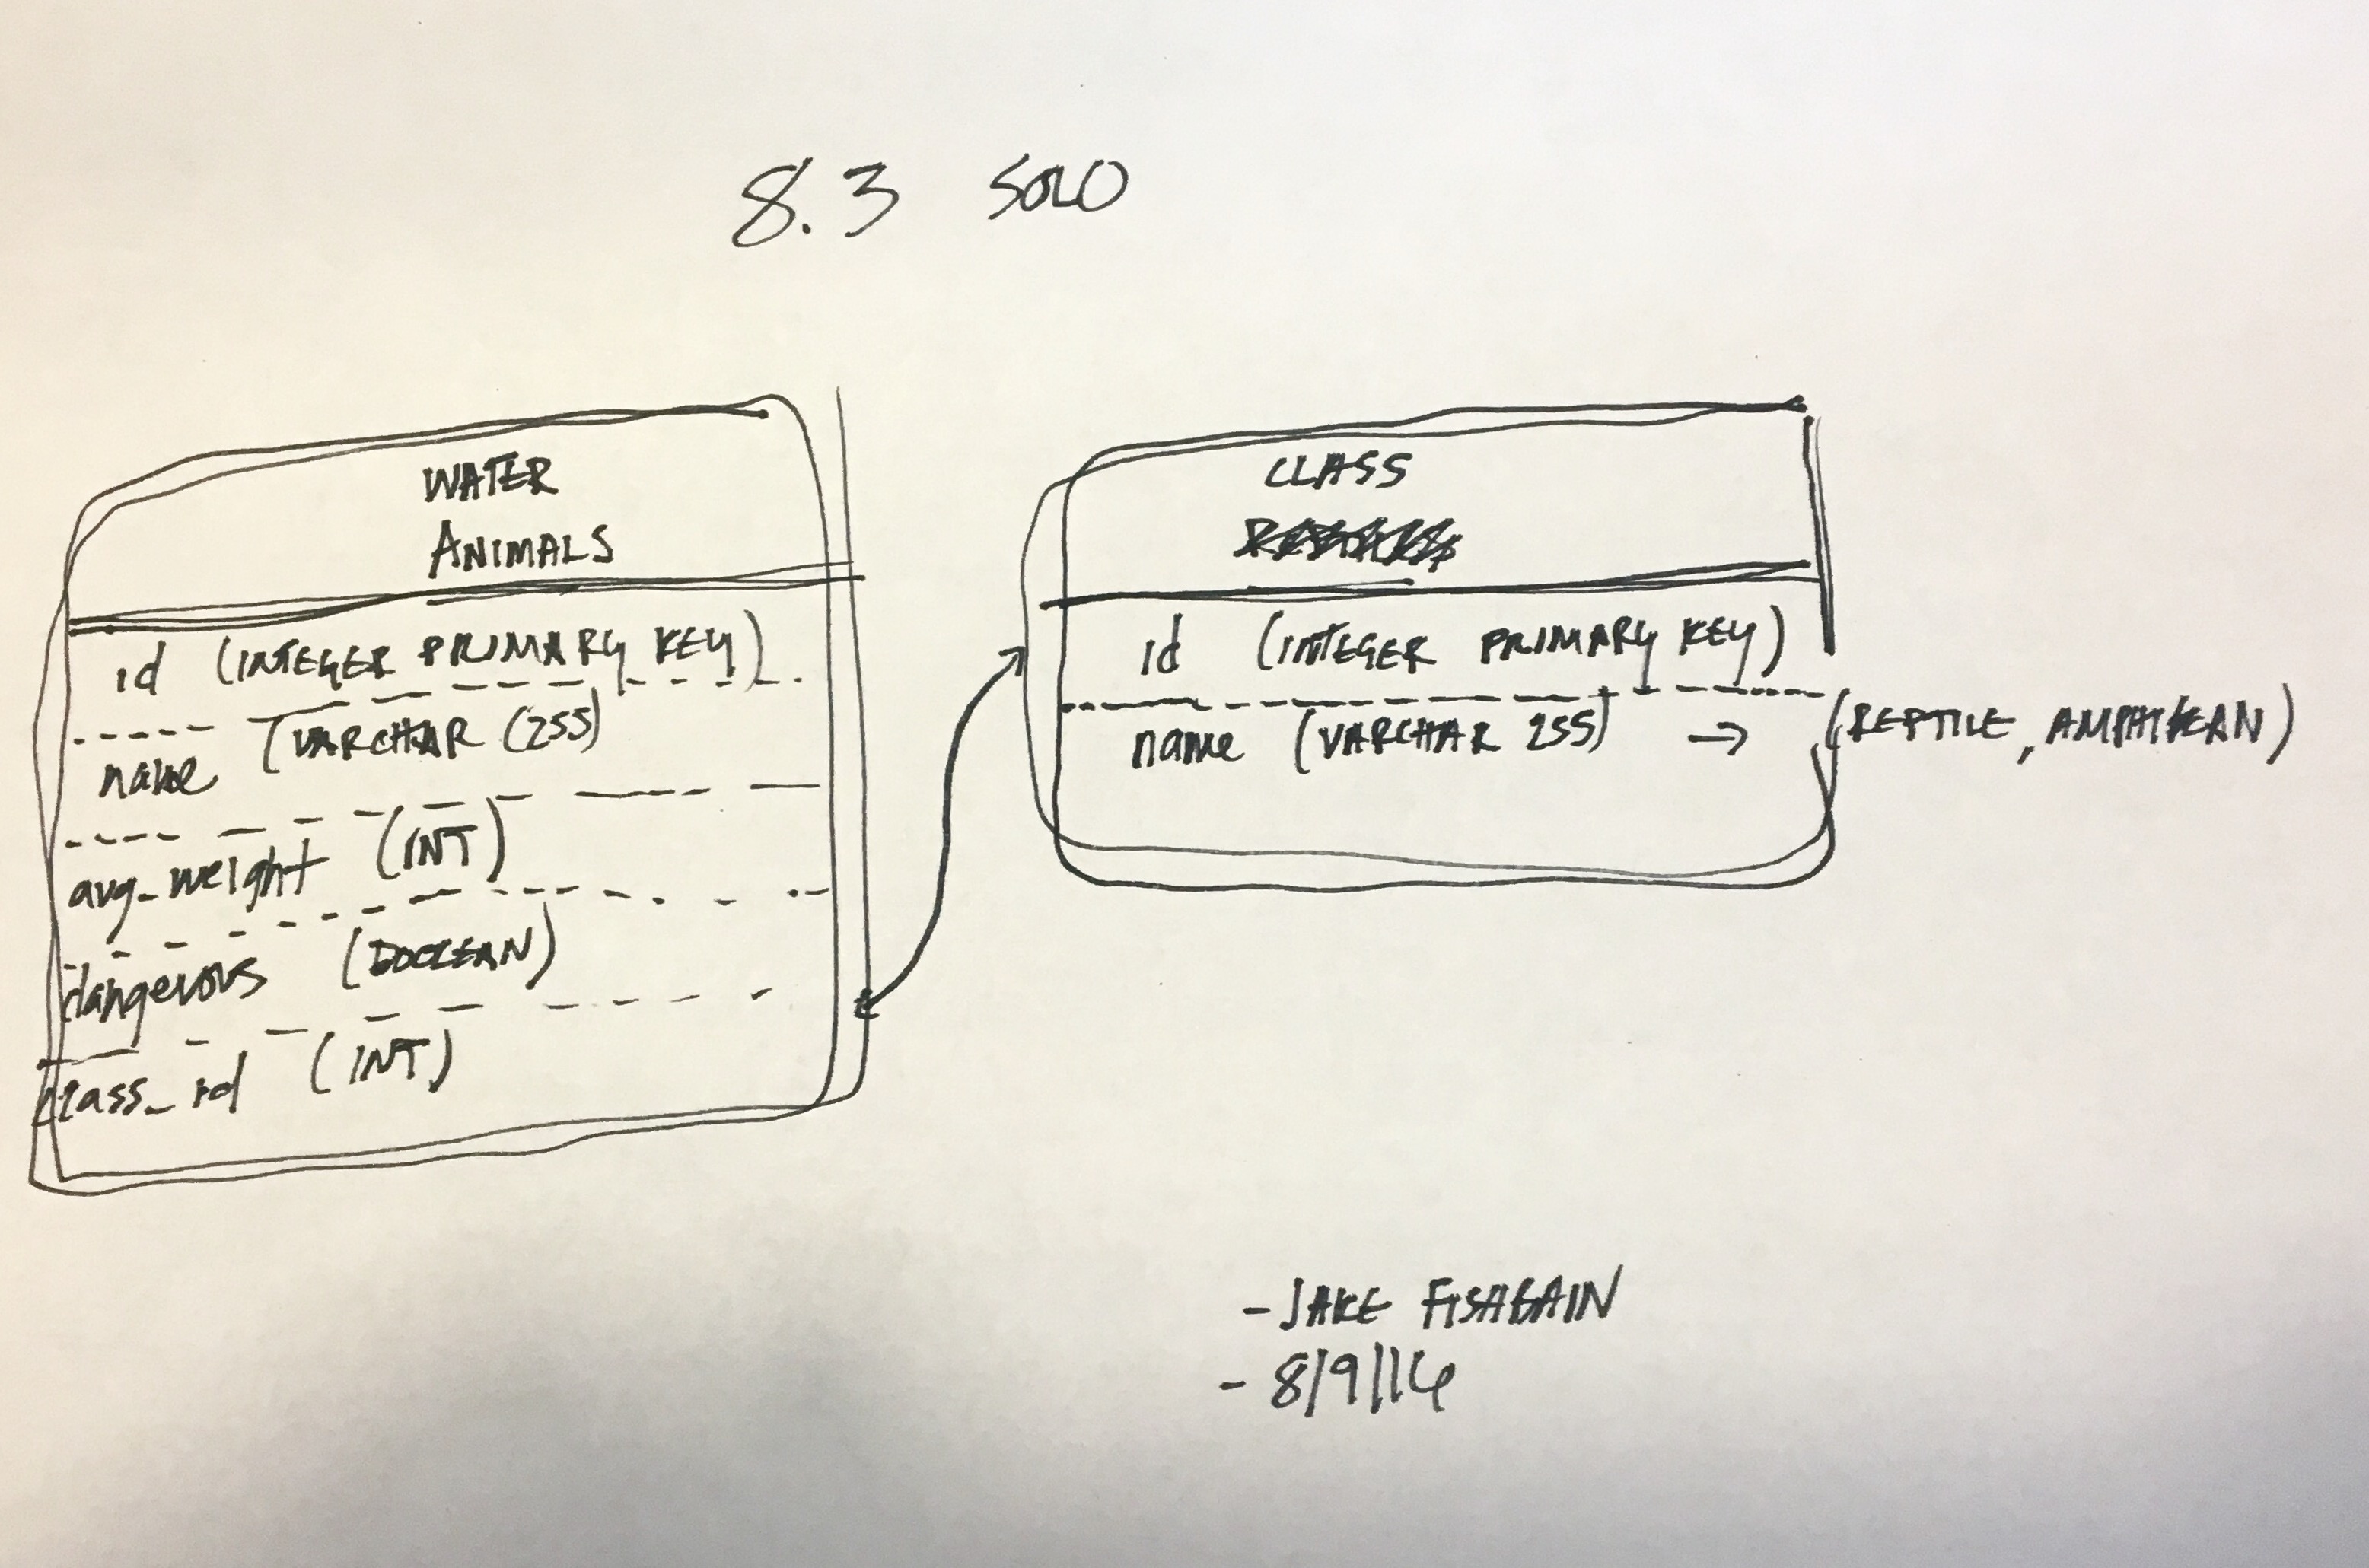 8.3 SOLO
WATER
ANIMALS
id (INTEGER PRIMARY KEY)
name (VARCHAR (255)
avg_weight (INT)
dangerous (BOOLEAN)
class_id (INT)
CLASS
id (INTEGER PRIMARY KEY)
name (VARCHAR 255) → (REPTILE,
- JAKE FISHBAIN
- 8/9/16